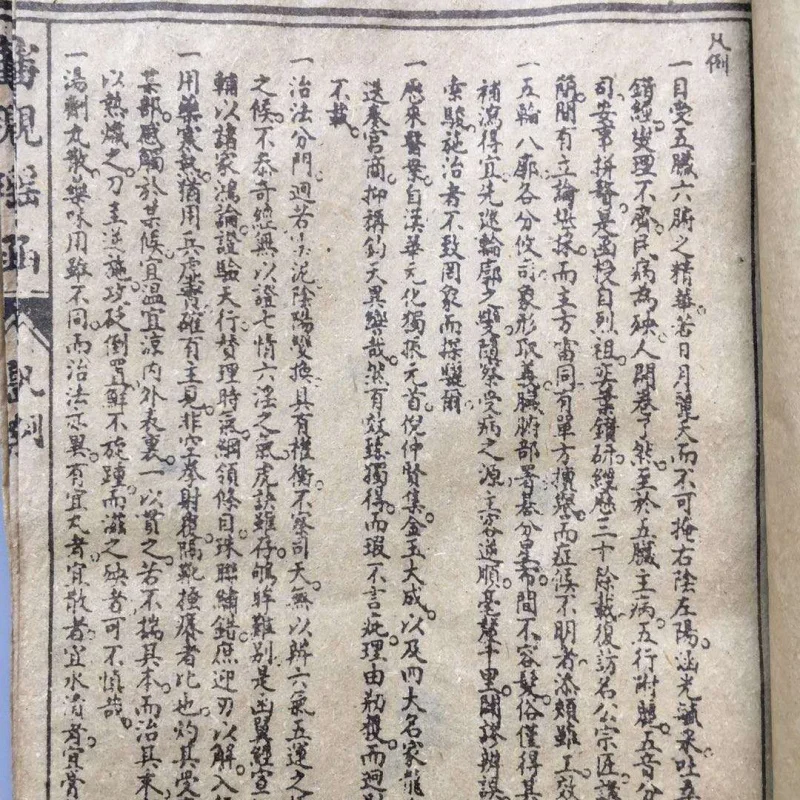 凡例
一目受五臟六腑之精華若日月麗天而不可掩右陰左陽涵光毓采吐五
錯經變理不齊民病為殃人開卷了然至於五臟主病五行附體五音分
司安事拼醫是函授自烈祖奕葉鑽研經歷三十餘載復訪名公宗匠
簡間有立論堪採而主方雷同有單方擅譽而症候不明者添頰雖工效
一五輪八廓各分攸司象形取義臟腑部署碁分星布間不容髮俗僅得其
補瀉得宜先巡輪廓之變隨察受病之源主客逆順毫釐千里闢謬辨誤
索驗施治者不致罔象而探驪爾
一歷來醫案自漢華元化獨振元首倪仲賢集金玉大成以及四大名家龍
迭奏宮商抑稱鈞天異樂哉然有效臻獨得而瑕不言疵理由勦襲而迥
不載
一治法分門迥若 泥陰陽變換具有權衡不察司天無以辨六氣五運之
之候不泰奇經無以證七情六淫之氣虎訣雖存鴝眸難別是函翼經宣
輔以諸家鴻論證驗天行贊理時氣綱領條目珠聯繡錯庶迎刃以解入
一用藥寒熱猶用兵虛實確有主見非空拳射覆隔靴搔癢者比也灼其受
某部感觸於某候宜溫宜涼內外表裏一以貫之若不揣其本而治其末
以熱熾之刀圭逆施攻砭倒置鮮不旋踵而滋之殃者可不慎哉
一湯劑丸散藥味用雖不同而治法亦異有宜丸者宜散者宜水漬者宜膏
審視瑤函
凡例